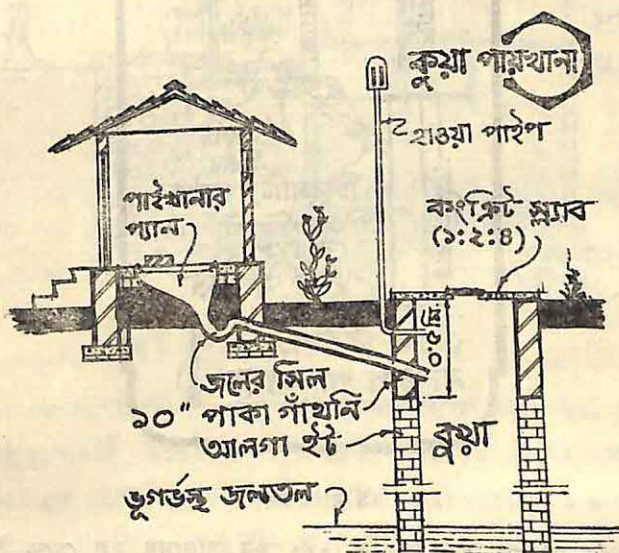 কুয়া পায়খানা
হাওয়া পাইপ
পাইখানার
প্যান
কংক্রিট স্ল্যাব
(১:২:৪)
জলের সিল
১০" পাকা গাঁথনি
আলগা ইট
কুয়া
ভূগর্ভস্থ জলতল